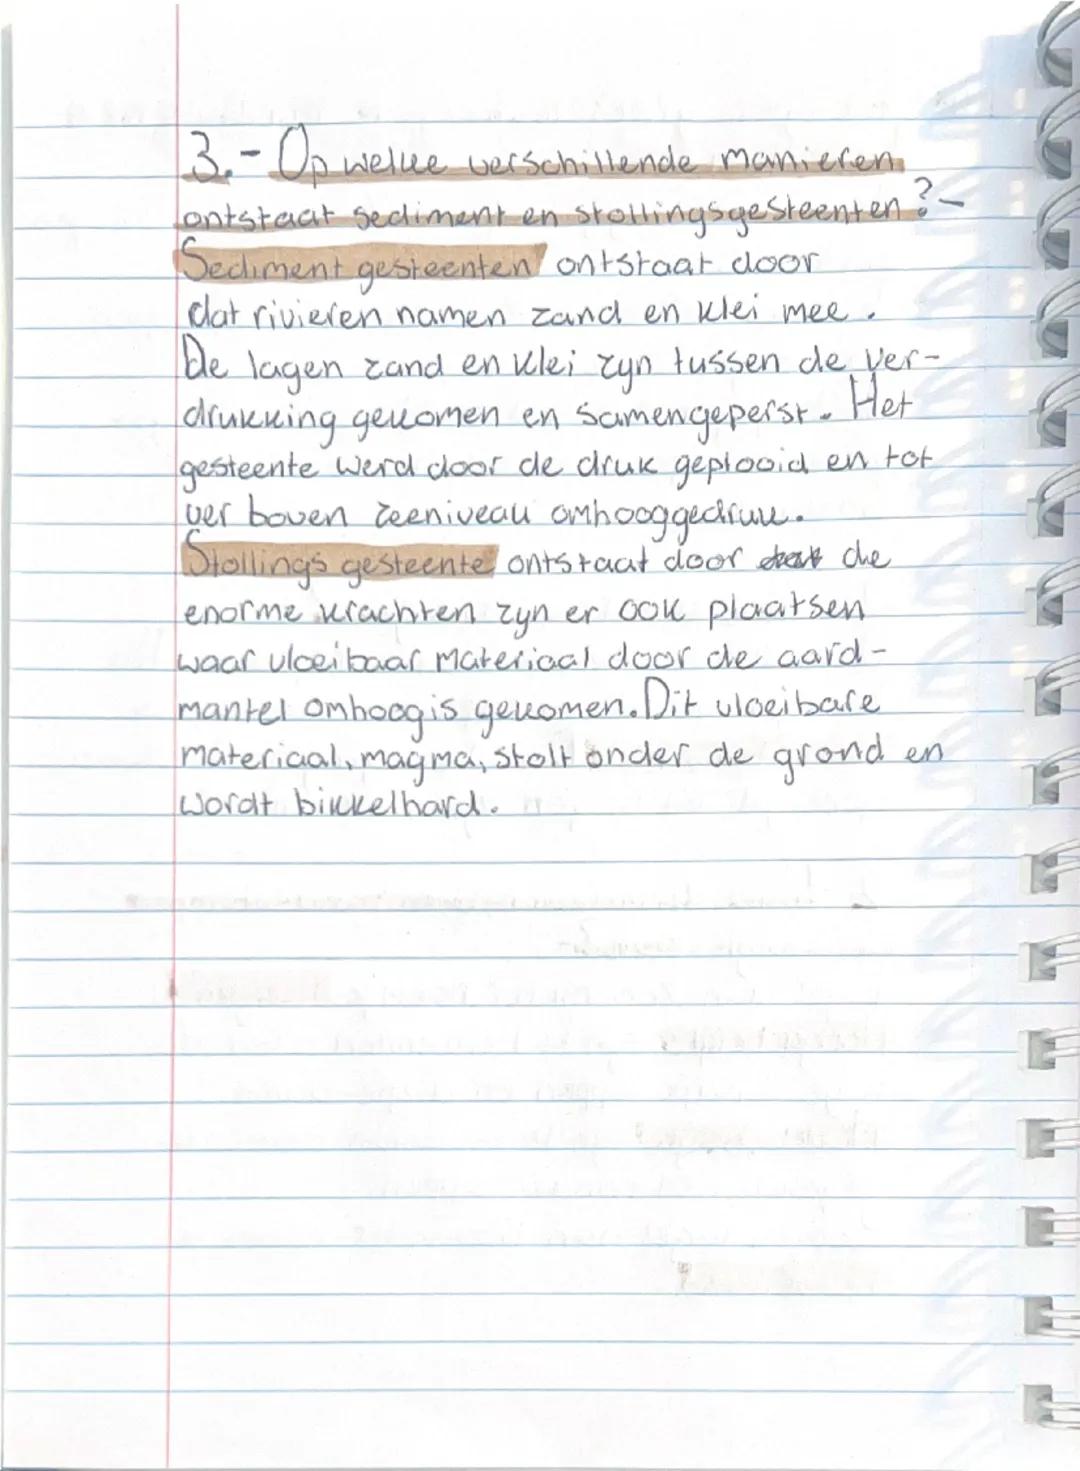 3.- Op welke verschillende manieren
ontstaat sediment en stollingsgesteenten?-
Sediment gesteenten ontstaat door
dat rivieren namen zand en klei mee.
De lagen zand en klei zyn tussen de ver-
drukking gekomen en samengeperst. Het
gesteente werd door de druk geplooid en tot
ver boven zeeniveau omhooggedruk.
Stollings gesteente ontstaat door dat de
enorme krachten zyn er ook plaatsen
waar vloeibaar materiaal door de aard-
mantel omhoog is gekomen. Dit vloeibare
materiaal, magma, stolt onder de grond en
wordt bikkelhard.